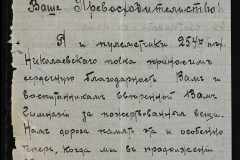 Ваше Превосходительство!
Я и пулеметчики 254го пѣх.
Николаевскаго полка приносимъ
сердечную благодарность Вамъ и
воспитанникамъ ввѣренной Вамъ
Гимназіи за пожертвованныя вещи.
Намъ дорога память эта и особенно
теперь, когда мы въ продолженіи